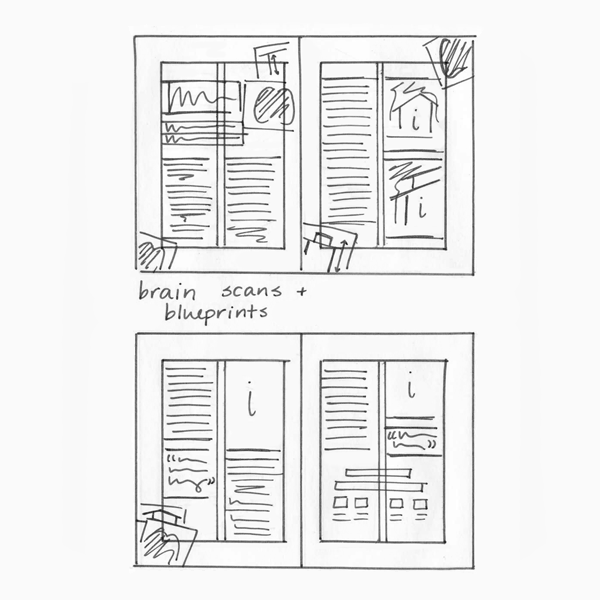 i
i
brain scans +
blueprints
i
i